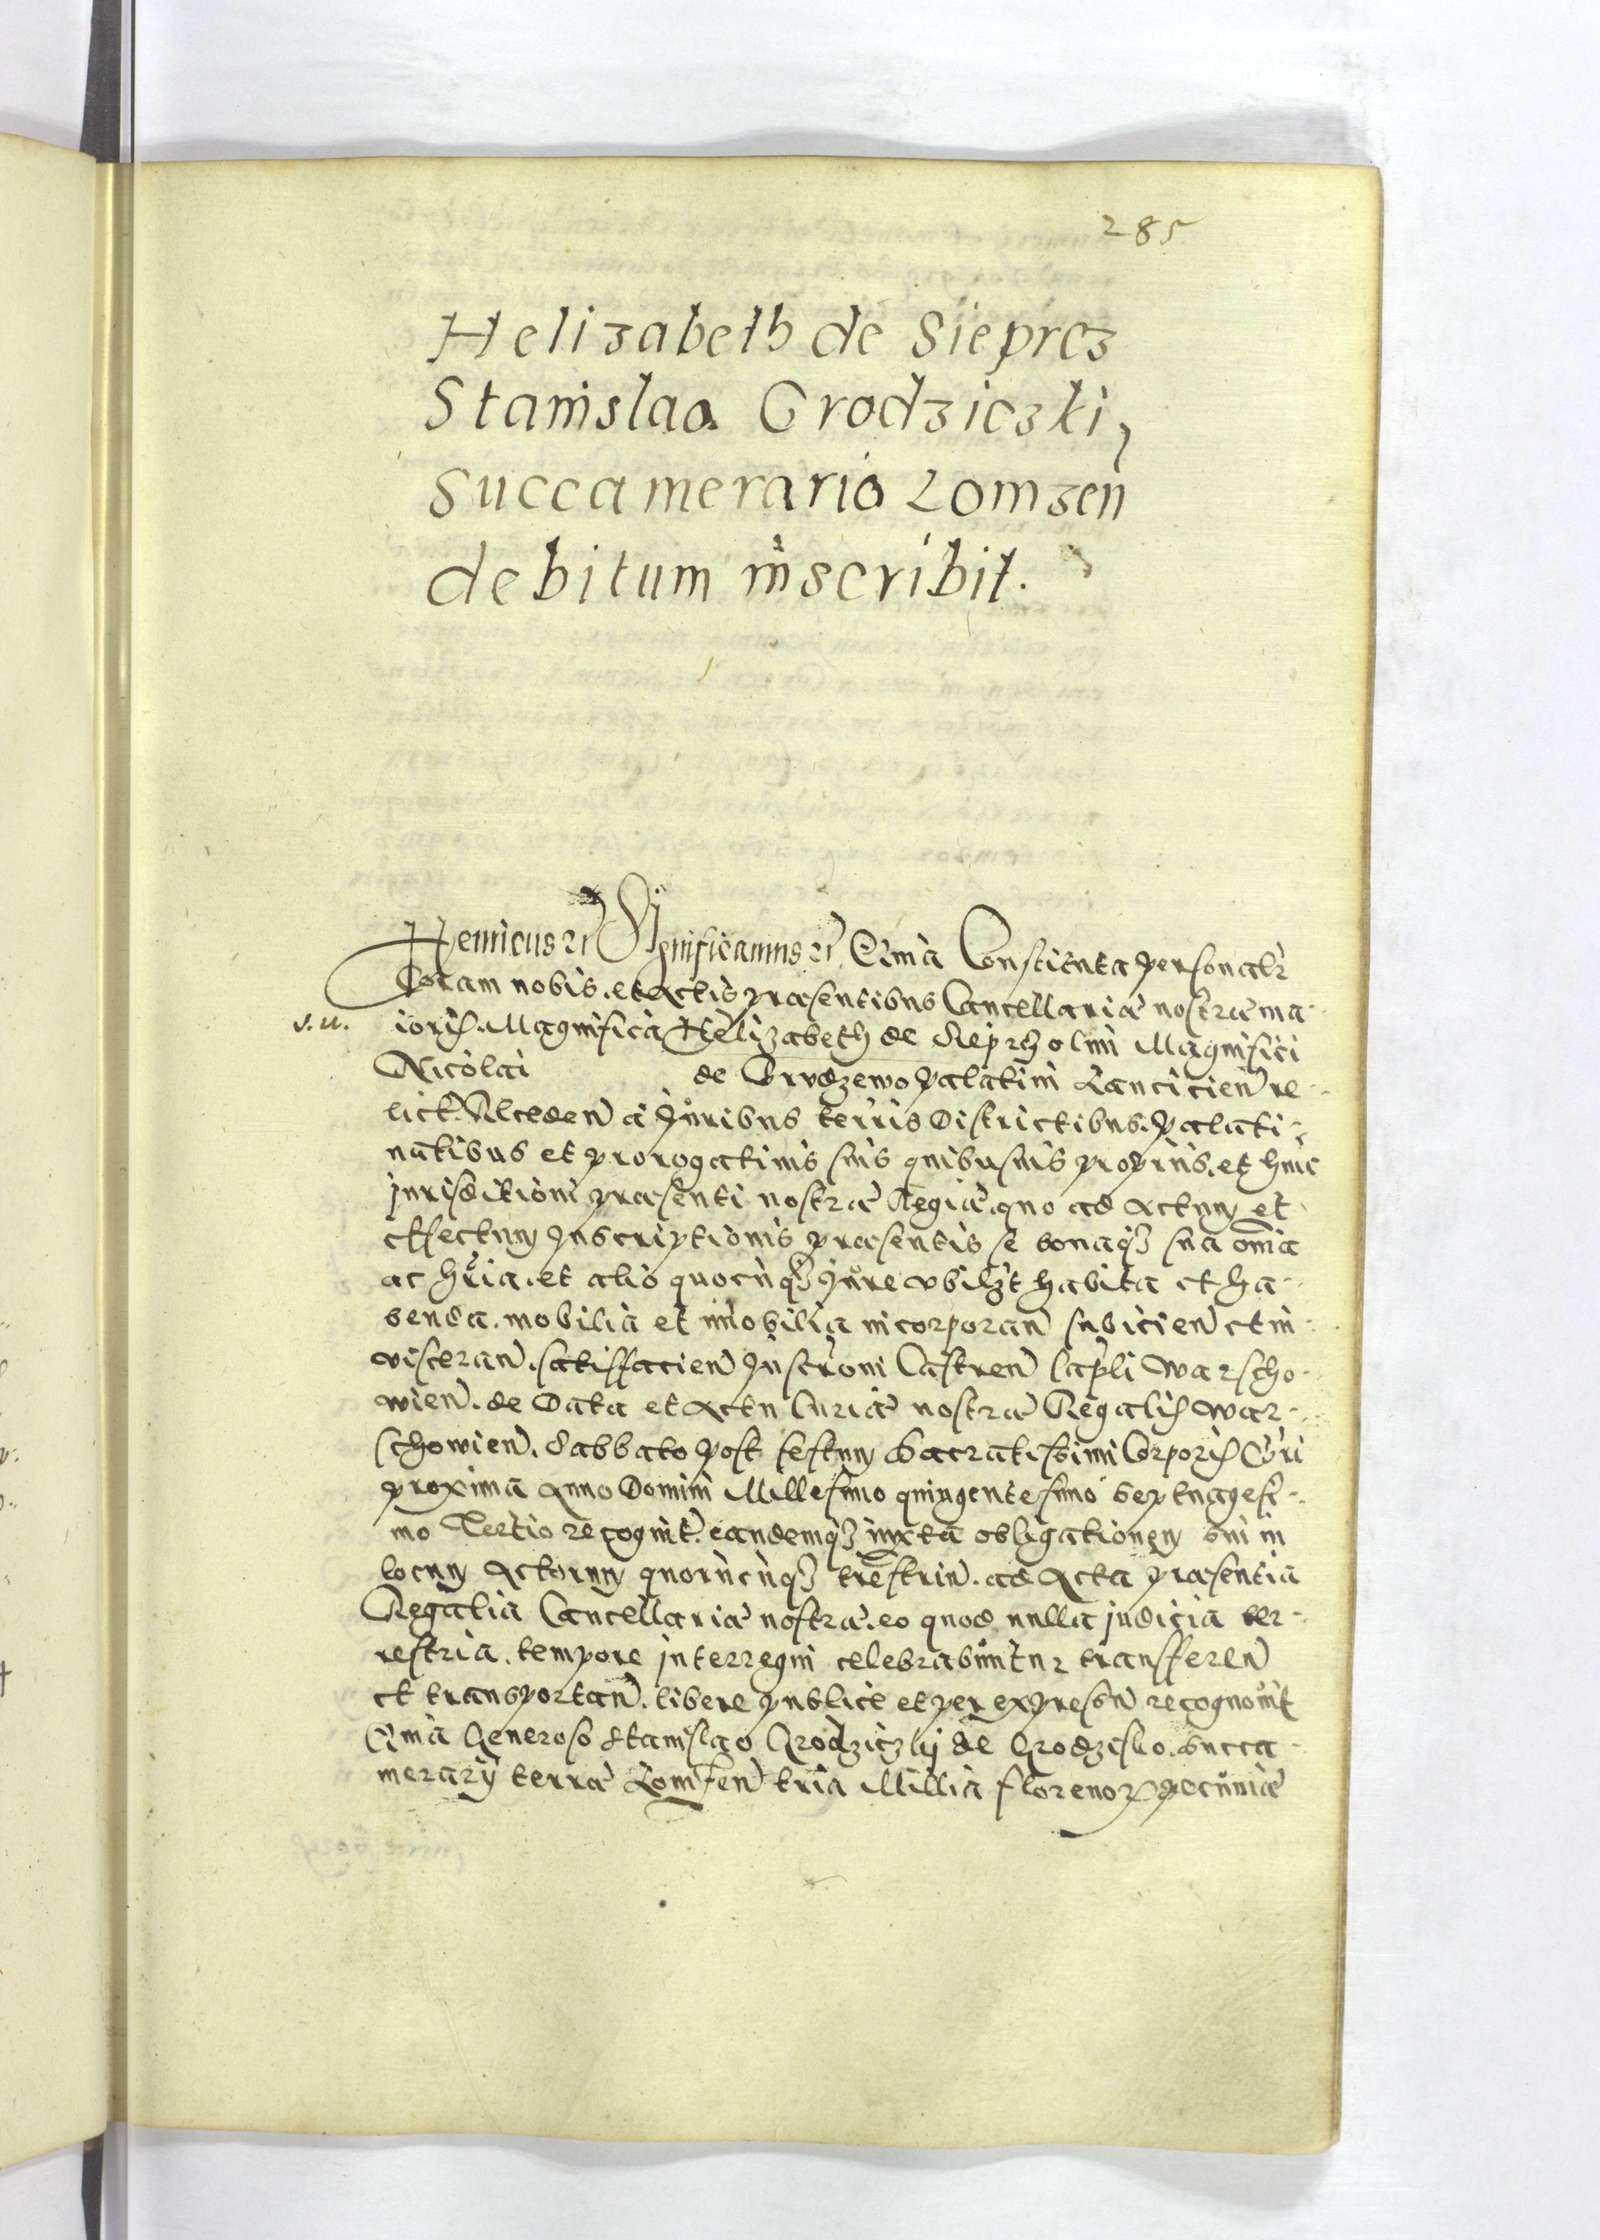 285
Helizabeth de Sieprcz
Stanislao Grodzieczki,
Succamerario Lomzen
debitum inscribit.
Henricus etc Significamus etc. Quia Constituta personalr
Coram nobis. et Actis praesentibus Cancellariae nostrae ma-
v. u. ioris. Magnifica Helizabeth de Sieprcz olim Magnifici
Nicolai de Brudzewo Palatini Lancicien re-
lict. Receden a Juribus terris Districtibus. Palati-
natibus et prorogatinis suis quibusuis propriis. et huic
jurisditioni praesenti nostrae Regiae. quo ad Actum et
effectum Inscriptionis praesentis se bonaqz sua omia
ac hria. et alio quocunqz Jure vbilzt habita et ha-
benda. mobilia et imobilia incorporan subicien et in-
visceran. satisfacien Inscroni Castren Capli Warscho-
wien. de Data et Actu Curiae nostrae Regalis War-
schowien. Sabbato post festum Sacratissimi Corporis Chri
proxima Anno Domini Millesimo quingentesimo Septuagesi-
mo Tertio recognit. eandemqz iuxta obligationem sui in
locum Actorum quoruncunqz trestrin. ad Acta praesentia
Regalia Cancellariae nostrae. eo quod nulla judicia ter-
restria. tempore interregni celebrabuntur transfferen
et transportan. libere publice et per expressum recognouit
Quia Generoso Stanislao Grodziczkij de Grodzisko. Succa-
merarij terrae Lomzen tria Millia florenor pecuniae